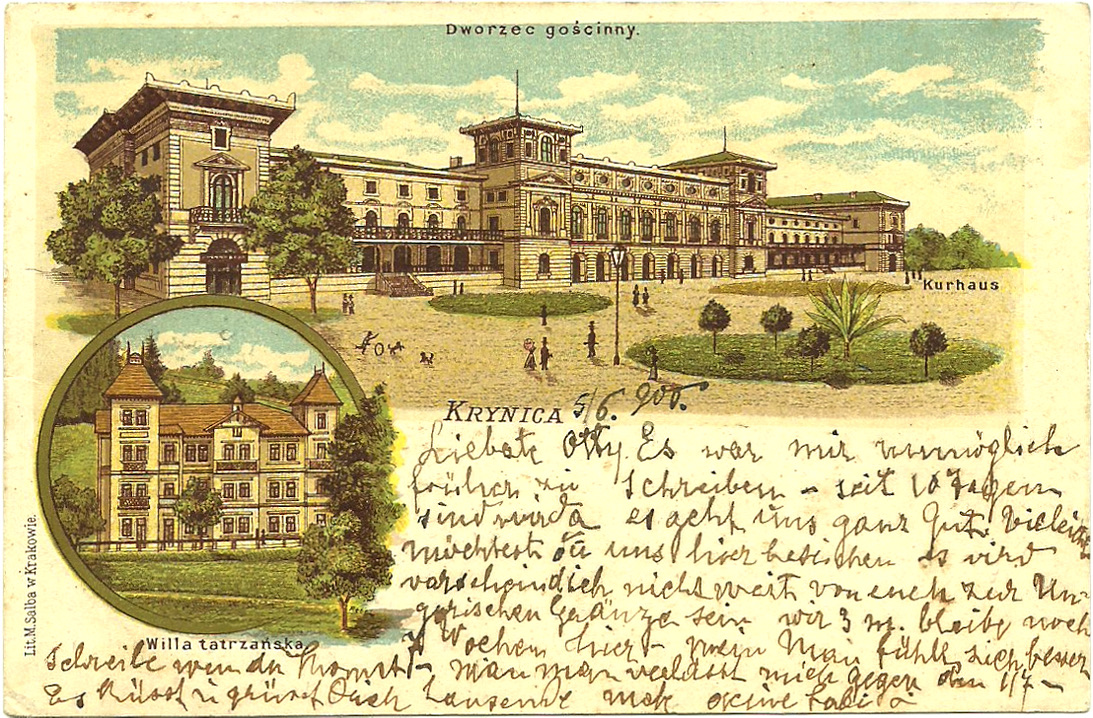 Dworzec gościnny.
Kurhaus
KRYNICA 5/6. 900.
Willa tatrzańska.
Lit. M. Salba w Krakowie.
Liebste Otty. Es war mir unmöglich
früher zu Schreiben – seit 10 Tagen
sind wir da es geht uns ganz Gut.
möchtest da uns hier besuchen es wird
varscheindlich nicht weit von euch zur Un-
garischen Gränze sein wir 3 bleibe noch
Wochen hier – mein Man fühlt sich besser
Schreibe wen du komst – mein man verlässt mich gegen den 1/7 –
Es küsst u grüsst Tausende